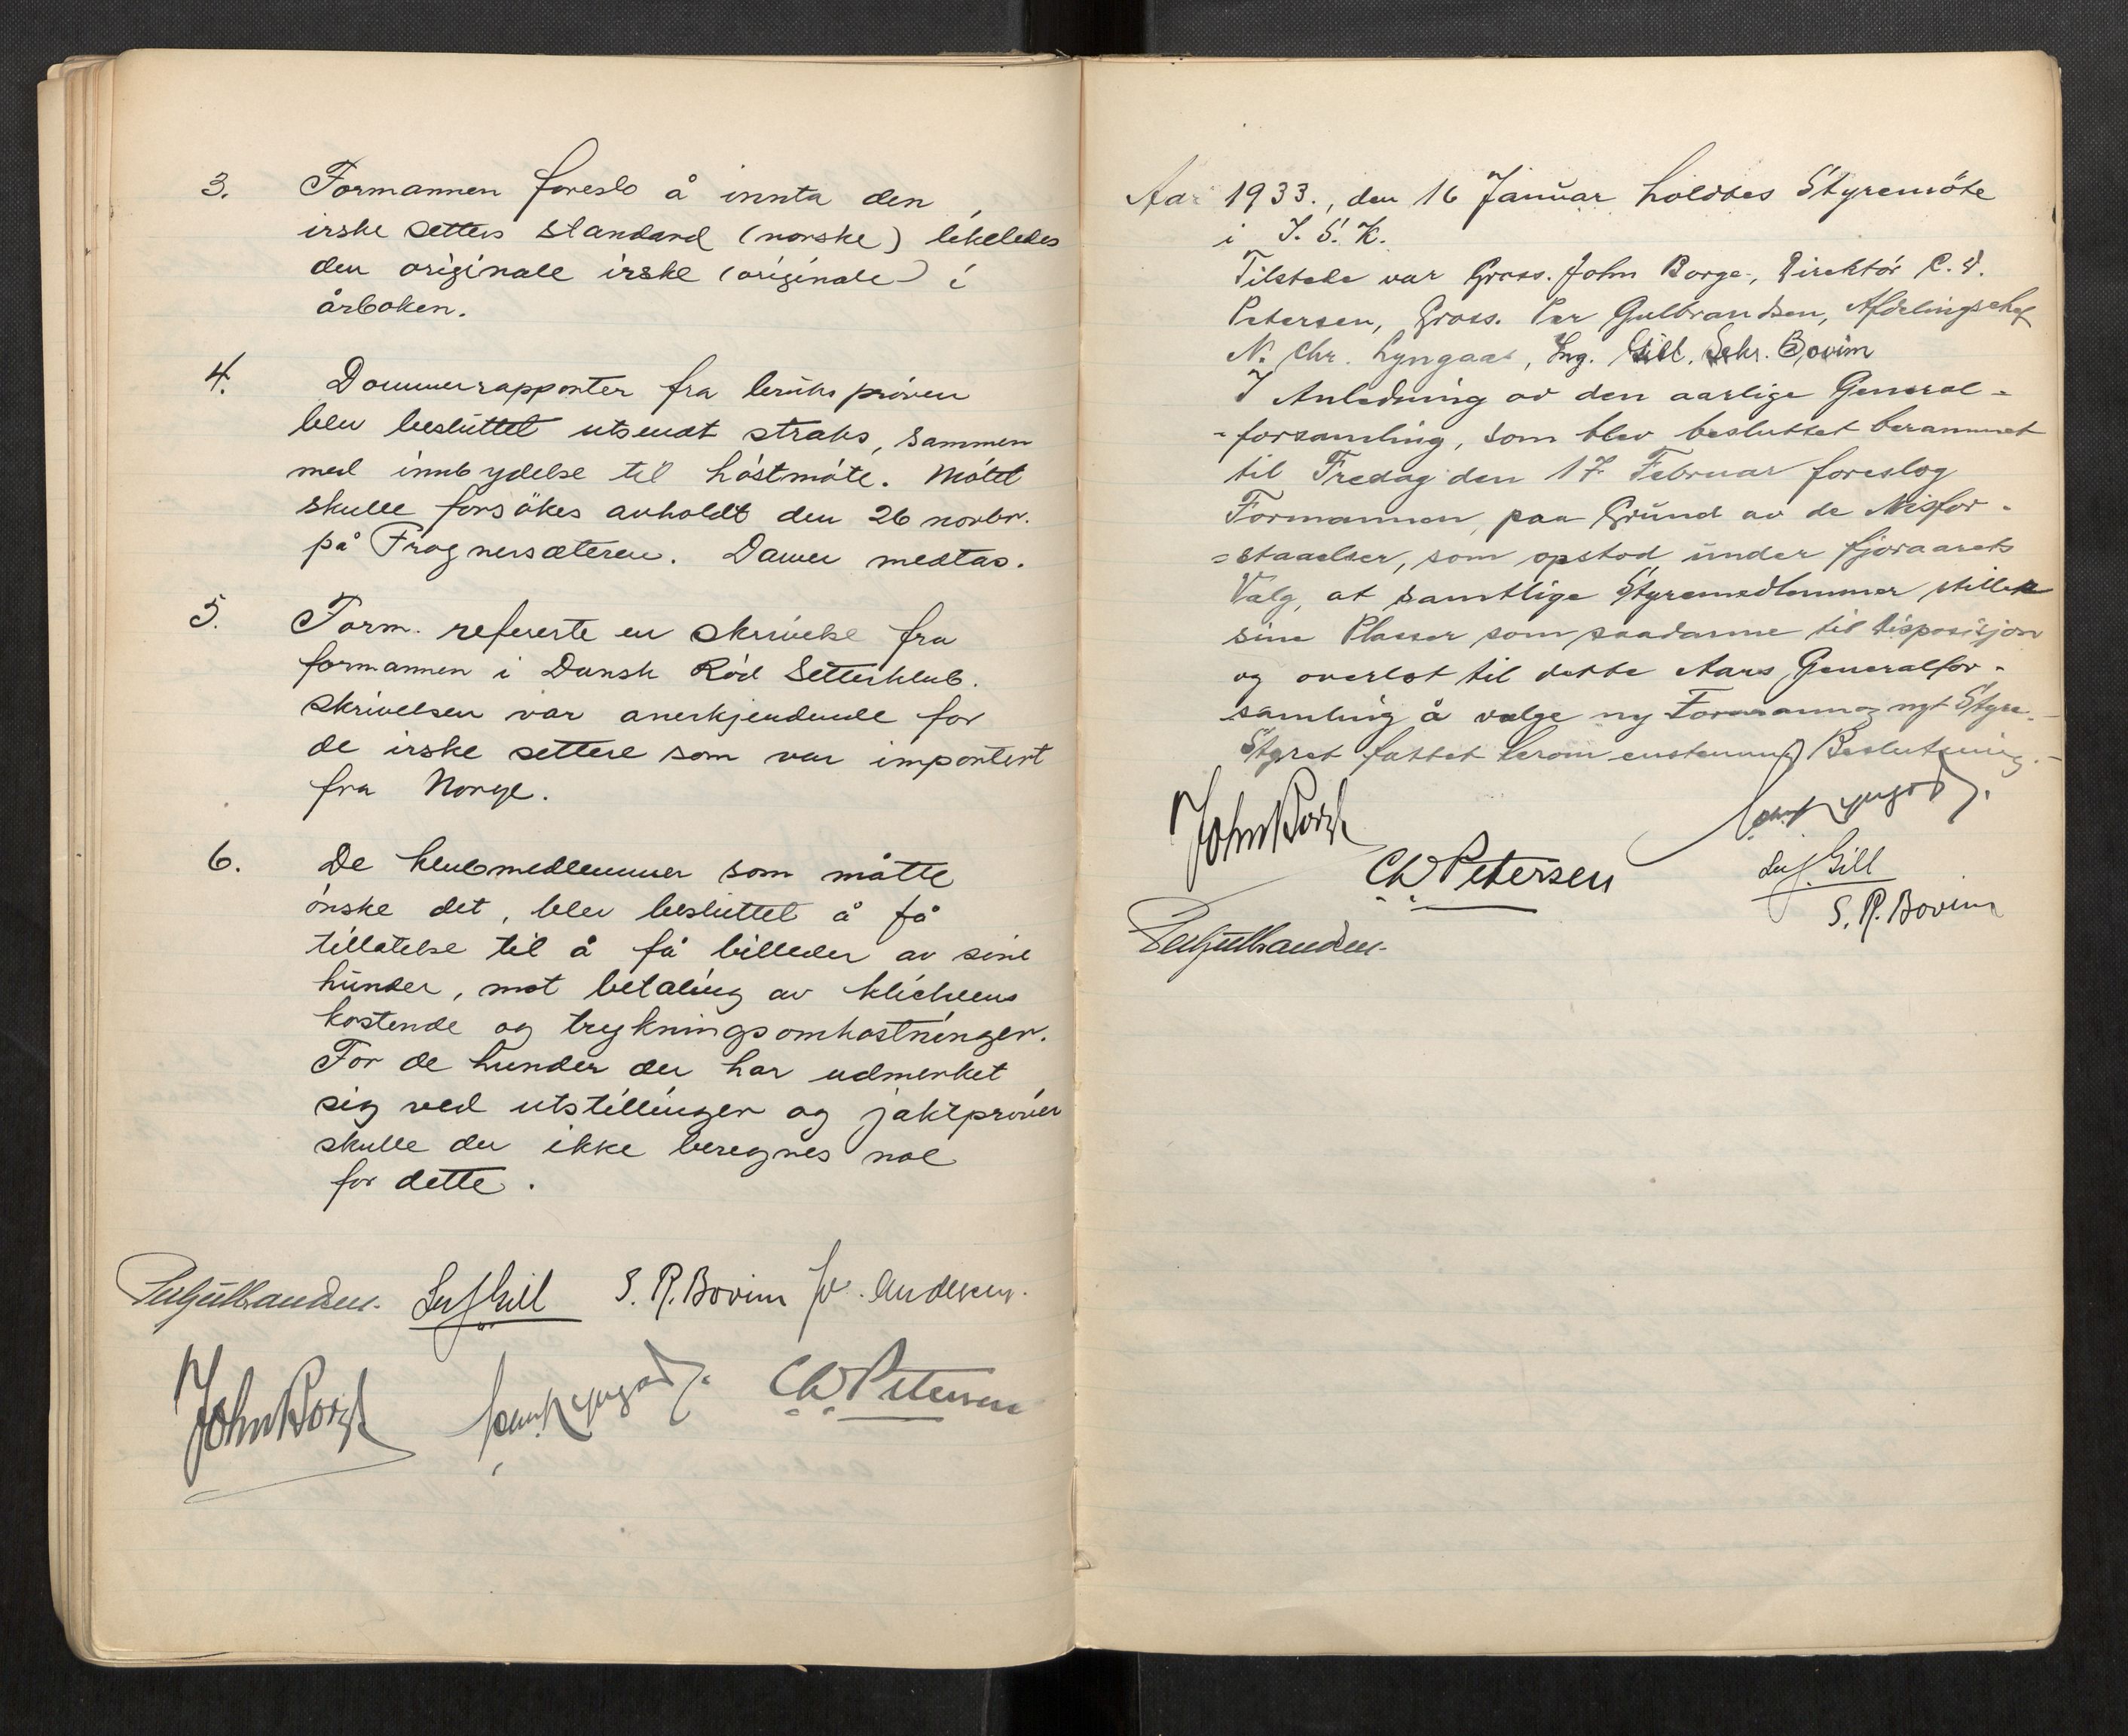 3. Formannen foreslo å innta den
irske setters standard (norske) likeledes
den originale irske (originale) i
årboken.
4. Dommerrapporter fra bruksprøven
blev besluttet utsendt straks, sammen
med innbydelse til höstmöte. Mötet
skulle forsökes avholdt den 26 novbr.
på Frognersæteren. Damer medtas.
5. Form. refererte en skrivelse fra
formannen i Dansk Röd Setterklub.
Skrivelsen var anerkjendende for
de irske settere som var importert
fra Norge.
6. De klubmedlemmer som måtte
önske det, blev besluttet å få
tillatelse til å få billeder av sine
hunder, mot betaling av klicheens
kostende og trykningsomkostninger.
For de hunder der har udmerket
sig ved utstillinger og jaktpröver
skulle der ikke beregnes noe
for dette.
Per Gulbrandsen. Leif Gill S. R. Bovim Fr. Andersen.
John Borge Chr. Lyngaas. C W Petersen
Aar 1933., den 16 Januar holdtes Styremöte
i I. S. K.
Tilstede var Gross. John Borge, Direktör C. W.
Petersen, Gross. Per Gulbrandsen, Afdelingschef
N. Chr. Lyngaas, Ing. Gill, Sekr. Bovim
I Anledning av den aarlige General-
-forsamling, som blev besluttet berammet
til Fredag den 17 Februar foreslog
Formannen, paa Grund av de Misfor-
=staaelser, som opstod under fjoraarets
Valg, at samtlige Styremedlemmer stiller
sine Plasser som saadanne til disposisjon
og overlot til dette Aars Generalfor-
samling å vælge ny Formann og nyt Styre.-
Styret fattet herom enstemmig Beslutning.-
John Borge Chr. Lyngaas.
C W Petersen Leif Gill
S. R. Bovim
Per Gulbrandsen.